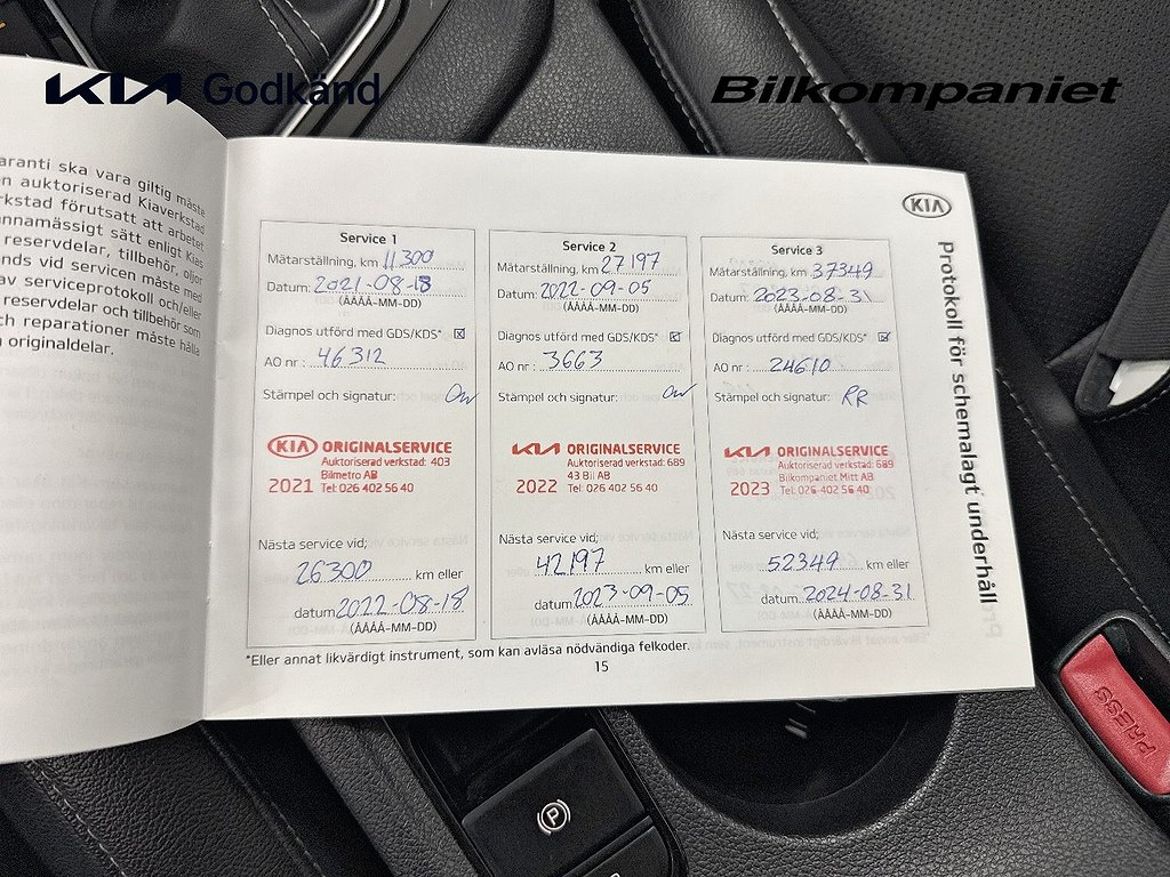 KIA Godkänd
Bilkompaniet
aranti ska vara giltig måste
n auktoriserad Kiaverkstad
rkstad förutsatt att arbetet
nnamässigt sätt enligt Kias
reservdelar, tillbehör, oljor
nds vid servicen måste med
av serviceprotokoll och/eller
reservdelar och tillbehör som
ch reparationer måste hålla
originaldelar.
KIA
Protokoll för schemalagt underhåll
Service 1
Mätarställning, km 11300
Datum: 2021-08-18
(ÅÅÅÅ-MM-DD)
Diagnos utförd med GDS/KDS*
AO nr: 46312
Stämpel och signatur:
KIA ORIGINALSERVICE
Auktoriserad verkstad: 403
Bilmetro AB
2021 Tel: 026 402 56 40
Nästa service vid;
26300 km eller
datum 2022-08-18
(ÅÅÅÅ-MM-DD)
Service 2
Mätarställning, km 27197
Datum: 2022-09-05
(ÅÅÅÅ-MM-DD)
Diagnos utförd med GDS/KDS*
AO nr: 3663
Stämpel och signatur:
KIA ORIGINALSERVICE
Auktoriserad verkstad: 689
43 Bil AB
2022 Tel: 026 402 56 40
Nästa service vid;
42197 km eller
datum 2023-09-05
(ÅÅÅÅ-MM-DD)
Service 3
Mätarställning, km 37349
Datum: 2023-08-31
(ÅÅÅÅ-MM-DD)
Diagnos utförd med GDS/KDS*
AO nr: 24610
Stämpel och signatur: RR
KIA ORIGINALSERVICE
Auktoriserad verkstad: 689
Bilkompaniet Mitt AB
2023 Tel: 026-402 56 40
Nästa service vid;
52349 km eller
datum 2024-08-31
(ÅÅÅÅ-MM-DD)
*Eller annat likvärdigt instrument, som kan avläsa nödvändiga felkoder.
15
PRESS
P